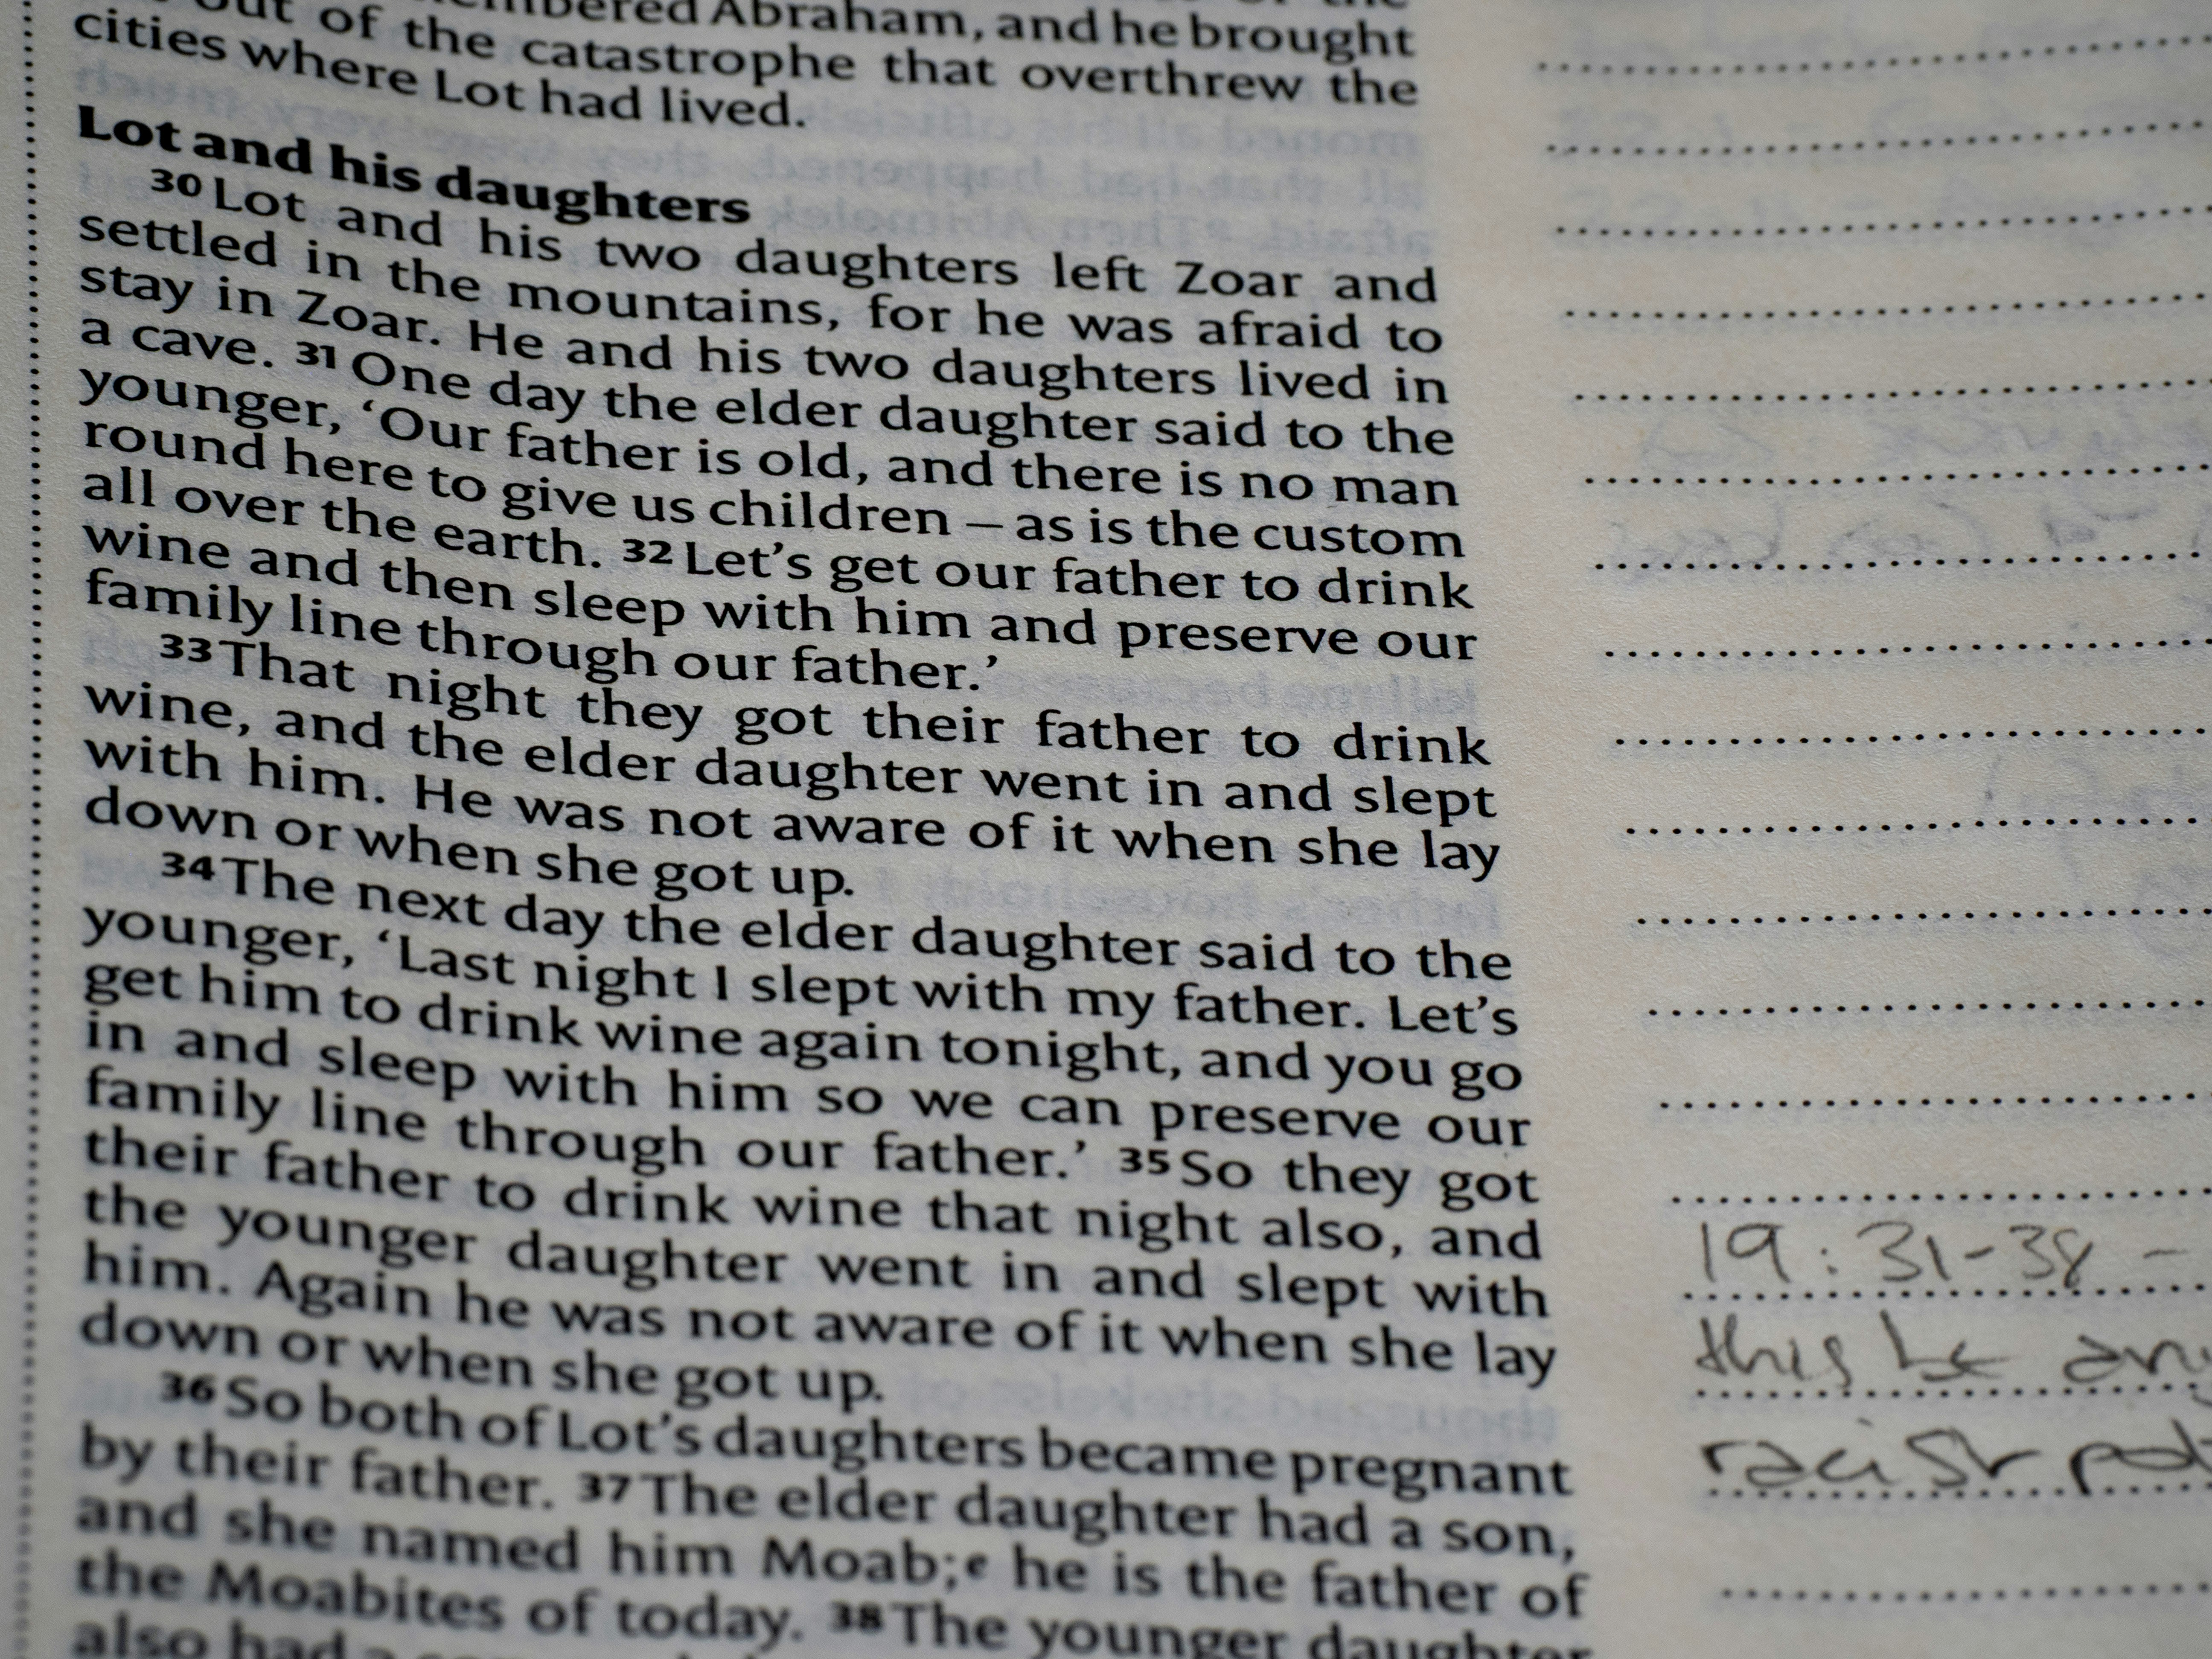 out of the catastrophe that overthrew the
cities where Lot had lived.
Lot and his daughters
30 Lot and his two daughters left Zoar and
settled in the mountains, for he was afraid to
stay in Zoar. He and his two daughters lived in
a cave. 31 One day the elder daughter said to the
younger, ‘Our father is old, and there is no man
round here to give us children – as is the custom
all over the earth. 32 Let’s get our father to drink
wine and then sleep with him and preserve our
family line through our father.’
33 That night they got their father to drink
wine, and the elder daughter went in and slept
with him. He was not aware of it when she lay
down or when she got up.
34 The next day the elder daughter said to the
younger, ‘Last night I slept with my father. Let’s
get him to drink wine again tonight, and you go
in and sleep with him so we can preserve our
family line through our father.’ 35 So they got
their father to drink wine that night also, and
the younger daughter went in and slept with
him. Again he was not aware of it when she lay
down or when she got up.
36 So both of Lot’s daughters became pregnant
by their father. 37 The elder daughter had a son,
and she named him Moab;e he is the father of
the Moabites of today. 38 The younger daughter
also had a
19:31-38 -
this be
racist